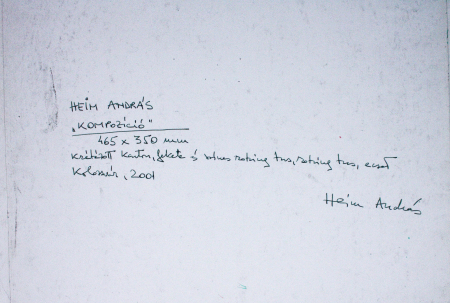 HEIM ANDRÁS
„KOMPOZÍCIÓ"
465 x 350 mm
krétázott karton, fekete és színes rotring tus, rotring tus, ecset
Kolozsvár, 2001
Heim András